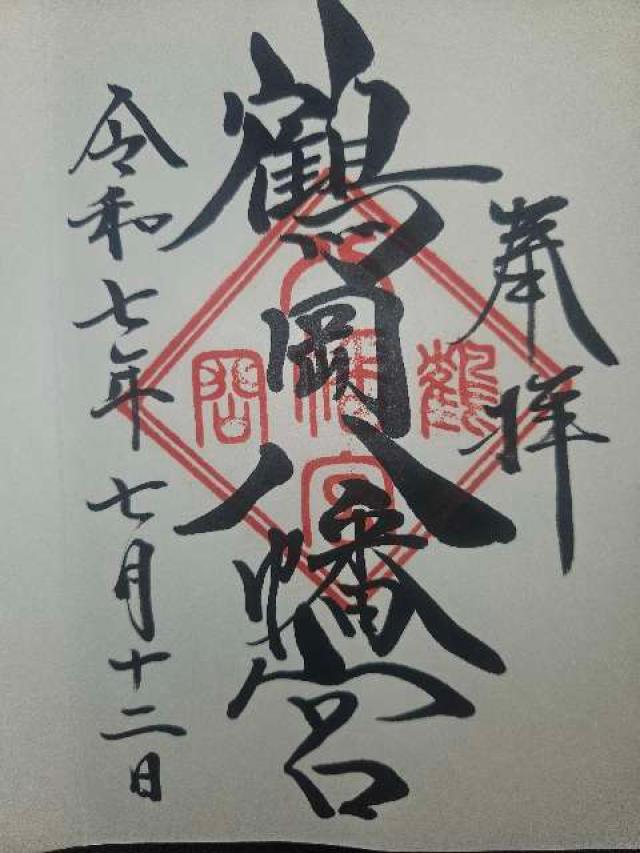 奉拝
鶴岡八幡宮
令和七年七月十二日
鶴
八幡宮
岡